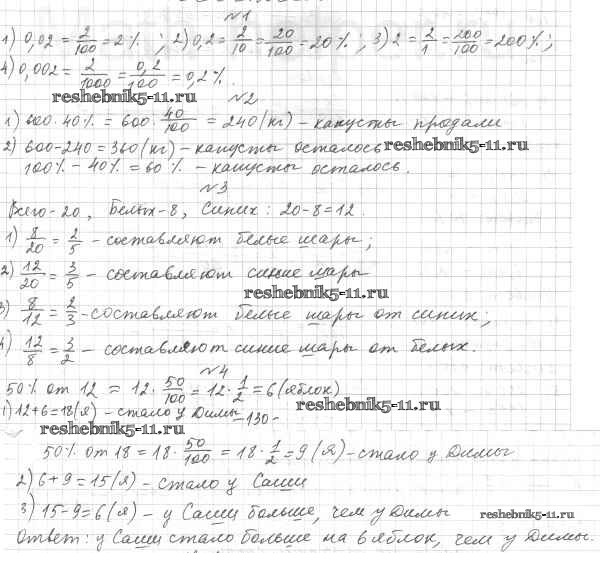 №1
1) 0,02 = 2/100 = 2% ; 2) 0,2 = 2/10 = 20/100 = 20% ; 3) 2 = 2/1 = 200/100 = 200% ;
4) 0,002 = 2/1000 = 0,2/100 = 0,2% .
reshebnik5-11.ru
№2
1) 600 · 40% = 600 · 40/100 = 240 (кг) – капусты продали
2) 600-240 = 360 (кг) – капусты осталось
reshebnik5-11.ru
100% – 40% = 60% – капусты осталось.
№3
Всего - 20, Белых - 8, Синих: 20-8=12.
1) 8/20 = 2/5 – составляют белые шары;
2) 12/20 = 3/5 – составляют синие шары
reshebnik5-11.ru
3) 8/12 = 2/3 – составляют белые шары от синих;
4) 12/8 = 3/2 – составляют синие шары от белых.
№4
50% от 12 = 12 · 50/100 = 12 · 1/2 = 6 (яблок)
reshebnik5-11.ru
1) 12+6=18(я) – стало у Димы
-130-
reshebnik5-11.ru
50% от 18 = 18 · 50/100 = 18 · 1/2 = 9 (я) – стало у Димы
2) 6+9=15(я) – стало у Саши
3) 15-9=6(я) – у Саши больше, чем у Димы
reshebnik5-11.ru
Ответ: у Саши стало больше на 6 яблок, чем у Димы.